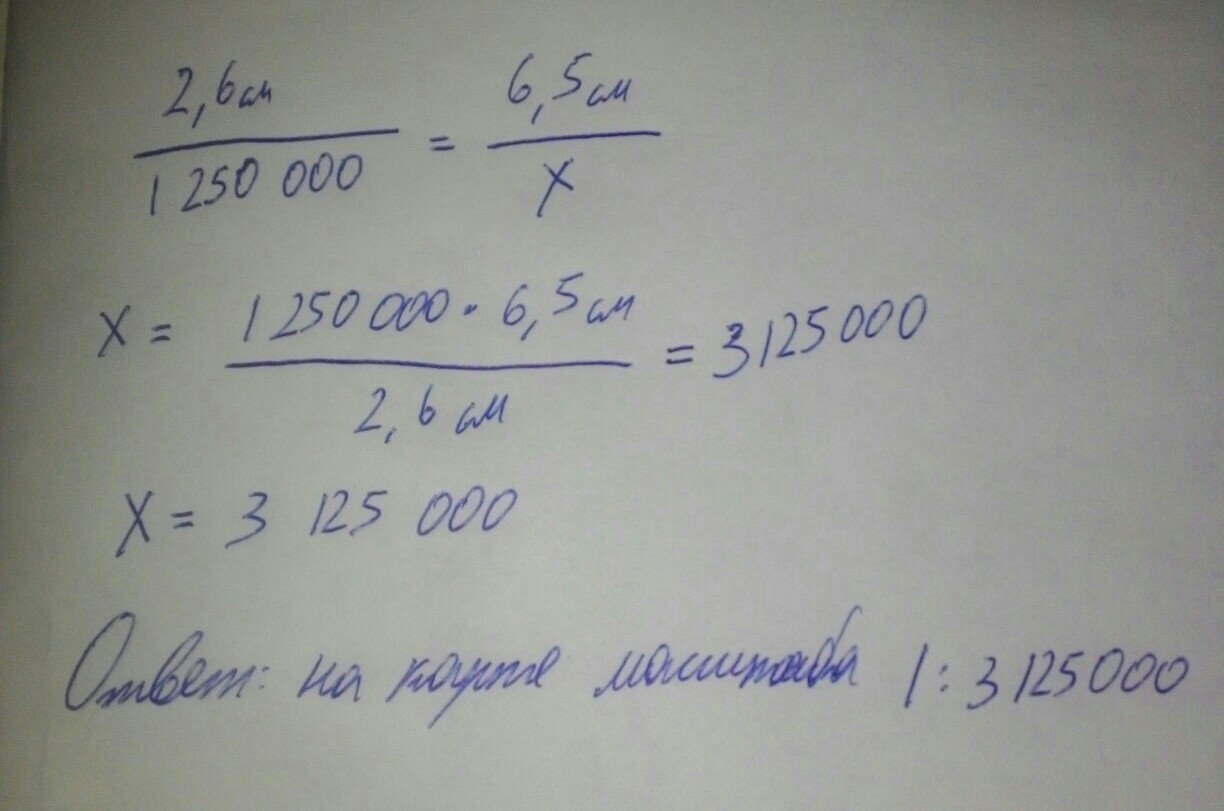 2,6см / 1 250 000 = 6,5см / X
X = 1 250 000 · 6,5см / 2,6 см = 3125000
X = 3 125 000
Ответ: на карте масштаба 1:3125000